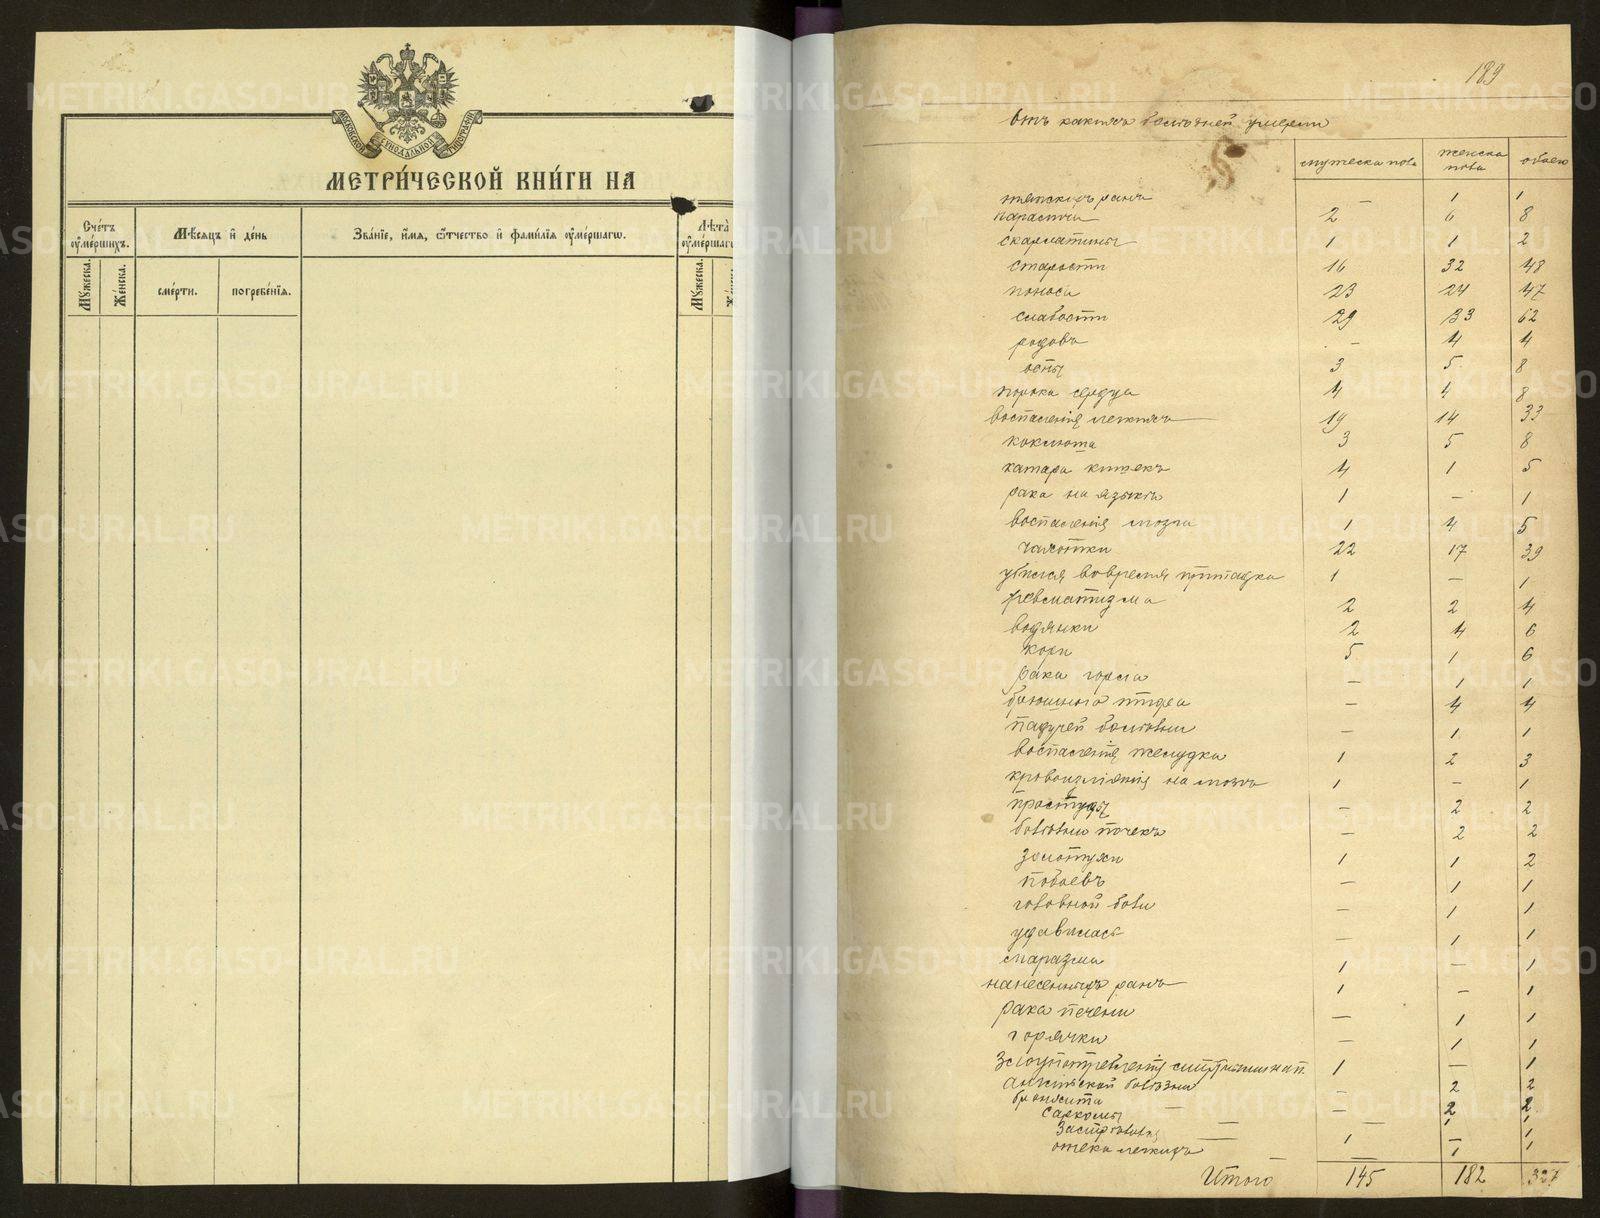 МОСКОВСКОЙ СѴНОДАЛЬНОЙ ТИПОГРАФІИ
МЕТРИ́ЧЕСКОЙ КНИ́ГИ НА
Сче́тъ ᲂу҆ме́ршихъ.
Мѣ́сяцъ и҆ де́нь
Зва́нїе, и҆́мя, ѻ҆́тчество и҆ фами́лїя ᲂу҆ме́ршагѡ.
Лѣ́та ᲂу҆ме́ршагѡ
Мꙋ́жеска.
Же́нска.
сме́рти.
погребе́нїя.
Мꙋ́жеска.
189
Отъ какихъ болѣзней умерли
мужеска пола женска пола обоего
— 1 1
2 6 8
скарлатины 1 1 2
старости 16 32 48
поноса 23 24 47
слабости 29 33 62
родовъ — 4 4
оспы 3 5 8
порока сердца 4 4 8
воспаленія легкихъ 19 14 33
коклюша 3 5 8
катара кишекъ 4 1 5
рака на языкѣ 1 — 1
воспаленія мозга 1 4 5
чахотки 22 17 39
убился вовремя припадка 1 — 1
ревматизма 2 2 4
водянки 2 4 6
кори 5 1 6
рака горла — 1 1
брюшного тифа — 4 4
падучей болѣзни — 1 1
воспаленія желудка 1 2 3
кровоизліянія на мозгъ 1 — 1
простуды — 2 2
болѣзни почекъ — 2 2
золотухи 1 1 2
побоевъ — 1 1
головной боли — 1 1
удавилась — 1 1
маразма 1 — 1
нанесенныхъ ранъ 1 — 1
рака печени — 1 1
горячки — 1 1
злоупотребленія спиртными нап. 1 — 1
англійской болѣзни — 2 2
бронхита — 2 2
саркомы — 1 1
застрѣлился 1 — 1
отека легкихъ — 1 1
Итого 145 182 327
METRIKI.GASO-URAL.RU